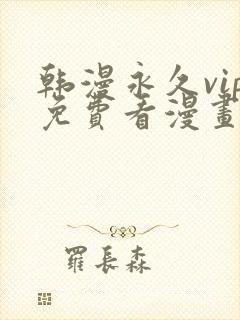 韩漫永久vip
免費看漫畫
羅長森